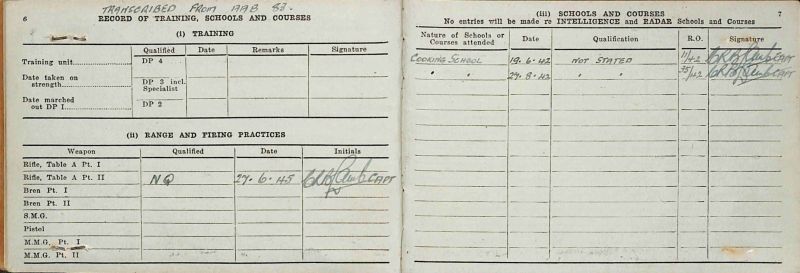 TRANSCRIBED FROM AAB 83.
6
RECORD OF TRAINING, SCHOOLS AND COURSES
(i) TRAINING
Qualified Date Remarks Signature
Training unit DP 4
Date taken on strength DP 3 incl. Specialist
Date marched out DP I DP 2
(ii) RANGE AND FIRING PRACTICES
Weapon Qualified Date Initials
Rifle, Table A Pt. I
Rifle, Table A Pt. II NQ 27.6.45 CAPT
Bren Pt. I
Bren Pt. II
S.M.G.
Pistol
M.M.G. Pt. I
M.M.G. Pt. II
(iii) SCHOOLS AND COURSES 7
No entries will be made re INTELLIGENCE and RADAR Schools and Courses
Nature of Schools or Courses attended Date Qualification R.O. Signature
COOKING SCHOOL 19.6.42 NOT STATED 11/42 CAPT
" " 29.8.42 " " 35/42 CAPT